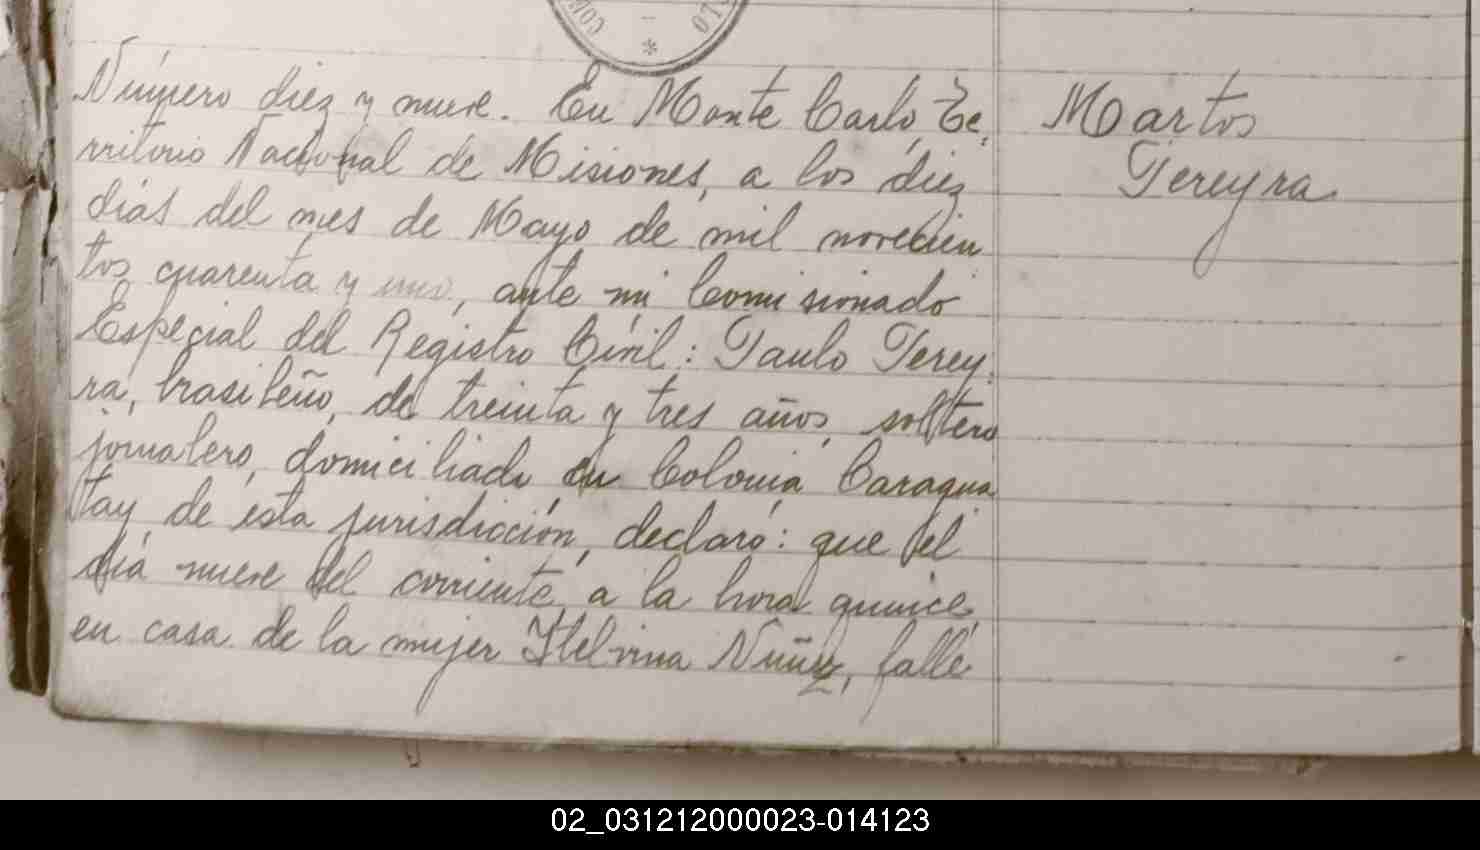 Número diez y nueve. En Monte Carlo, Te-
rritorio Nacional de Misiones, a los diez
días del mes de Mayo de mil novecien
tos cuarenta y uno, ante mi Comisionado
Especial del Registro Civil: Paulo Perey-
ra, brasileño, de treinta y tres años, soltero
jornalero, domiciliado en Colonia Caragua
tay de ésta jurisdicción, declaró: que el
día nueve del corriente, a la hora quince,
en casa de la mujer Etelvina Nuñez, falle
Martos
Pereyra
02_031212000023-014123